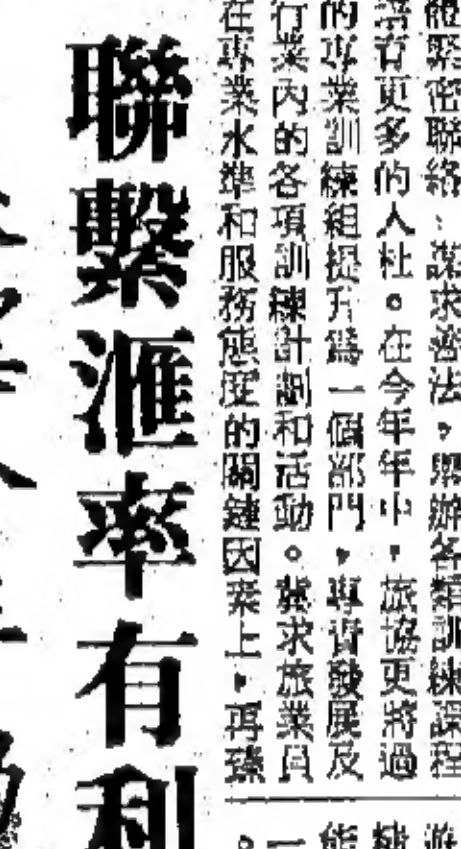 體緊密聯絡，謀求善法，舉辦各類訓練課程
培育更多的人杜。在今年年中，旅協更將過
的專業訓練組提升為一個部門，專責發展及
行業內的各項訓練計劃和活動。冀求旅業員
在專業水準和服務態度的關鍵因素上，再臻
聯繫滙率有利